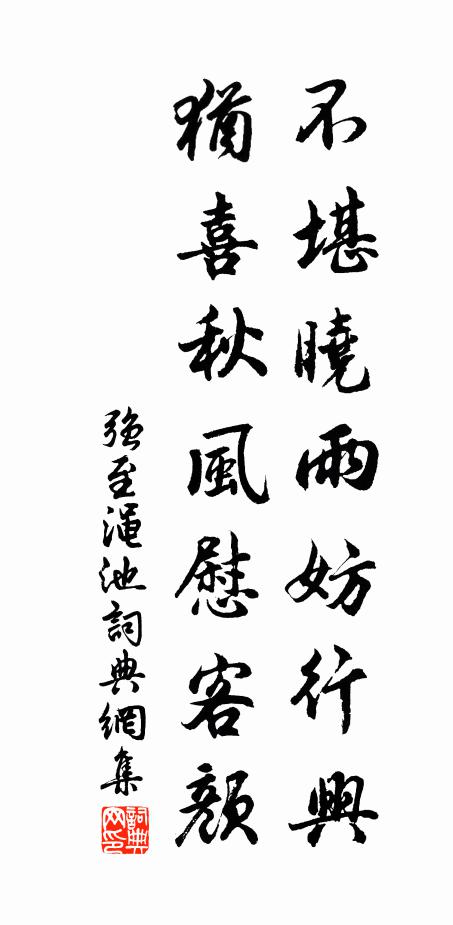 不堪曉雨妨行興
猶喜秋風慰客顏
強至澠池詞典網集
詞典网印